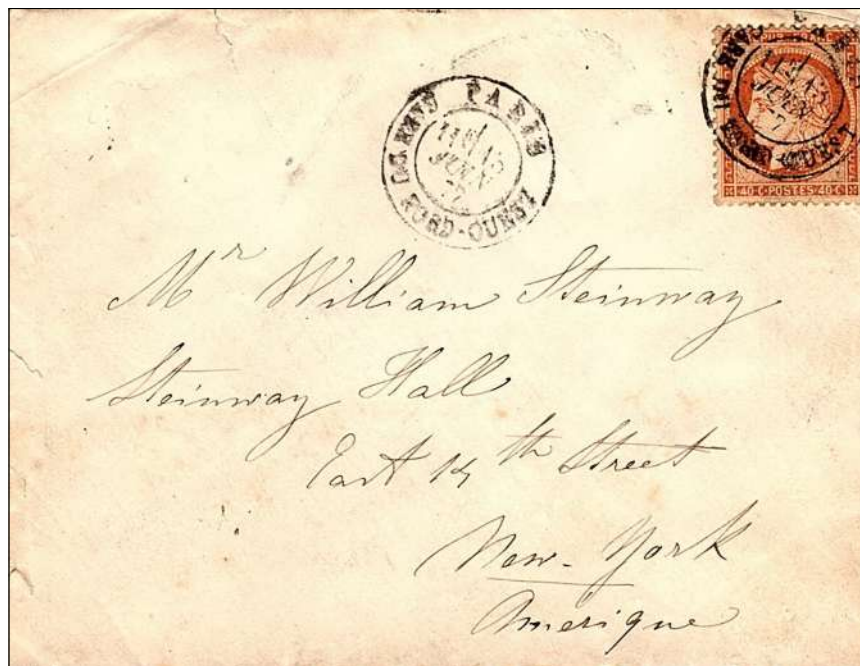 PARIS
GARE DU
NORD-OUEST
JUIN
GARE DU
40 C POSTES 40 C
Mr William Steinway
Steinway Hall
East 14th Street
New-York
Amérique